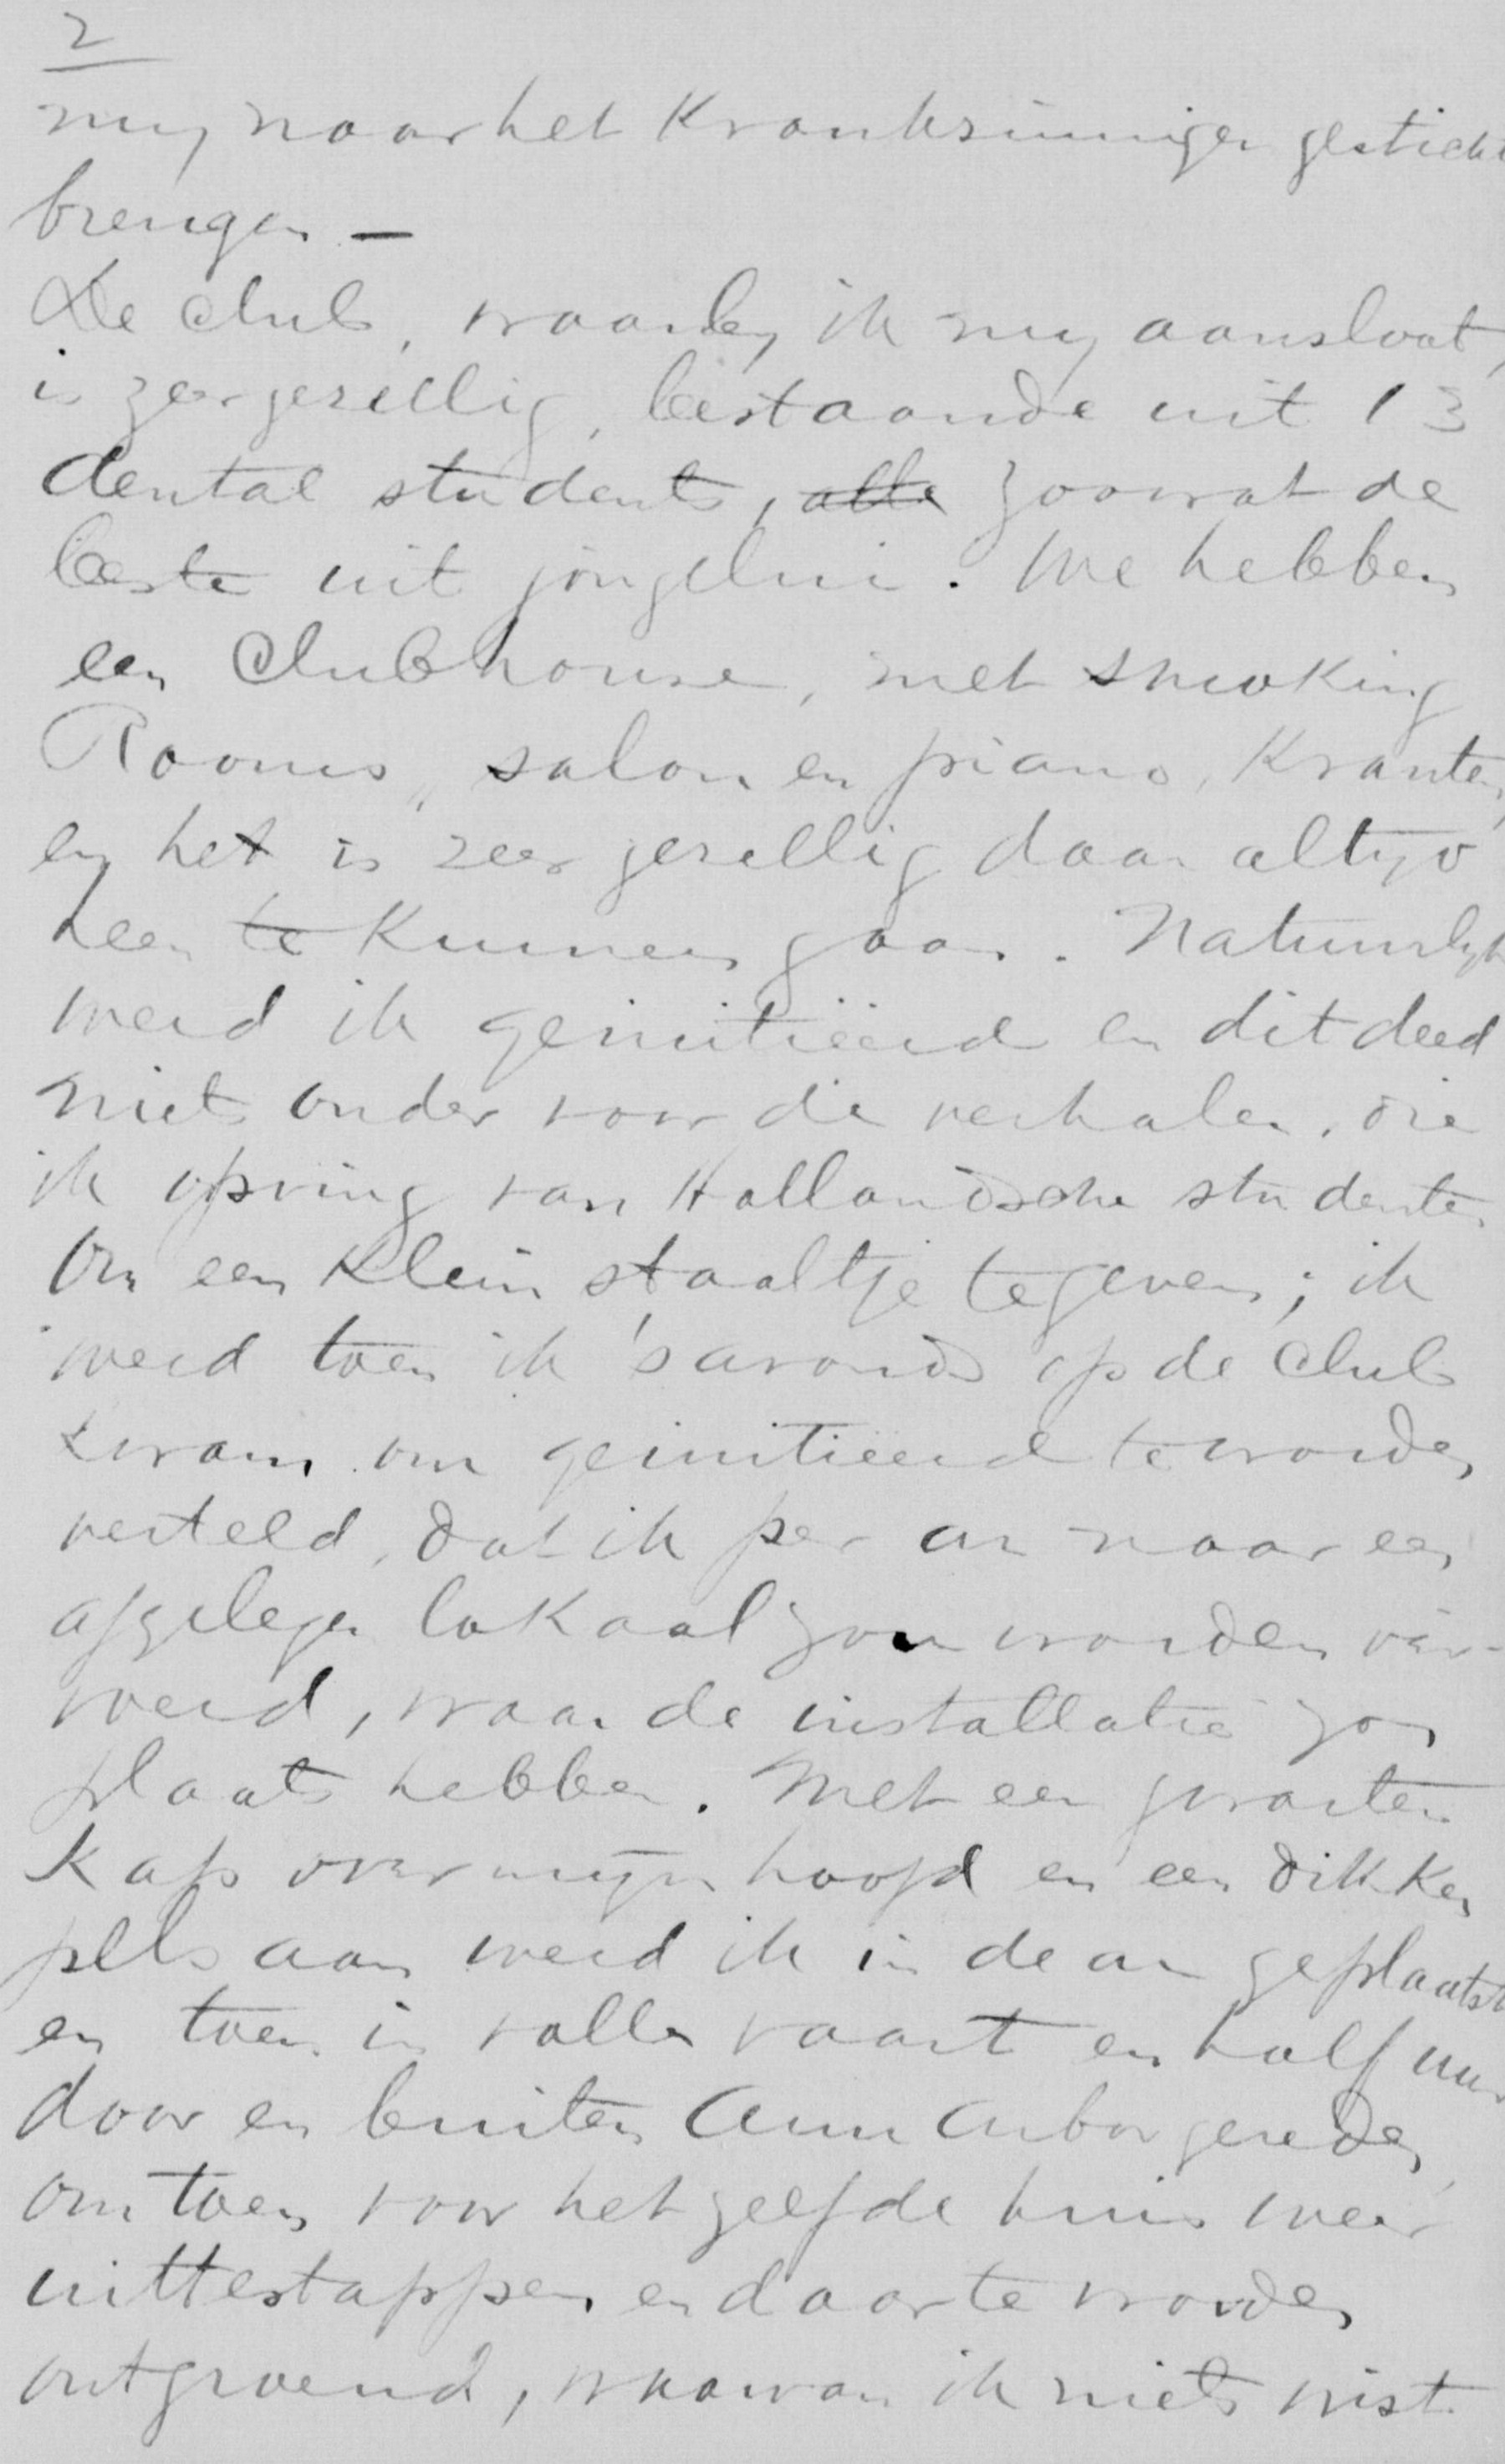 2
mij naar het Krankzinnigen gesticht
brengen –
De club, waarbij ik mij aansloot,
is zeer gezellig, bestaande uit 13
dental students, alle zoowat de
beste uit jongelui. We hebben
een Clubhouse, met smoking
Rooms, salon en piano, Kranten,
en het is zeer gezellig daar altijd
heen te kunnen gaan. Natuurlijk
werd ik geinitiëerd en dit deed
niets onder voor die verhalen, die
ik opving van Hollandsche studenten
Om een klein staaltje te geven; ik
werd toen ik 's avonds op de Club
kwam om geinitieerd te worden,
verteld, dat ik per ar naar een
afgelegen lokaal zou worden ver-
voerd, waar de installatie zou
plaats hebben. Met een zwarten
Kap over mijn hoofd en een dikken
pels aan werd ik in de ar geplaatst
en toen in volle vaart en half uur
door en buiten Ann Arbor gereden,
om toen voor het zelfde huis weer
uittestappen en daar te worden
ontgroend, waarvan ik niets wist